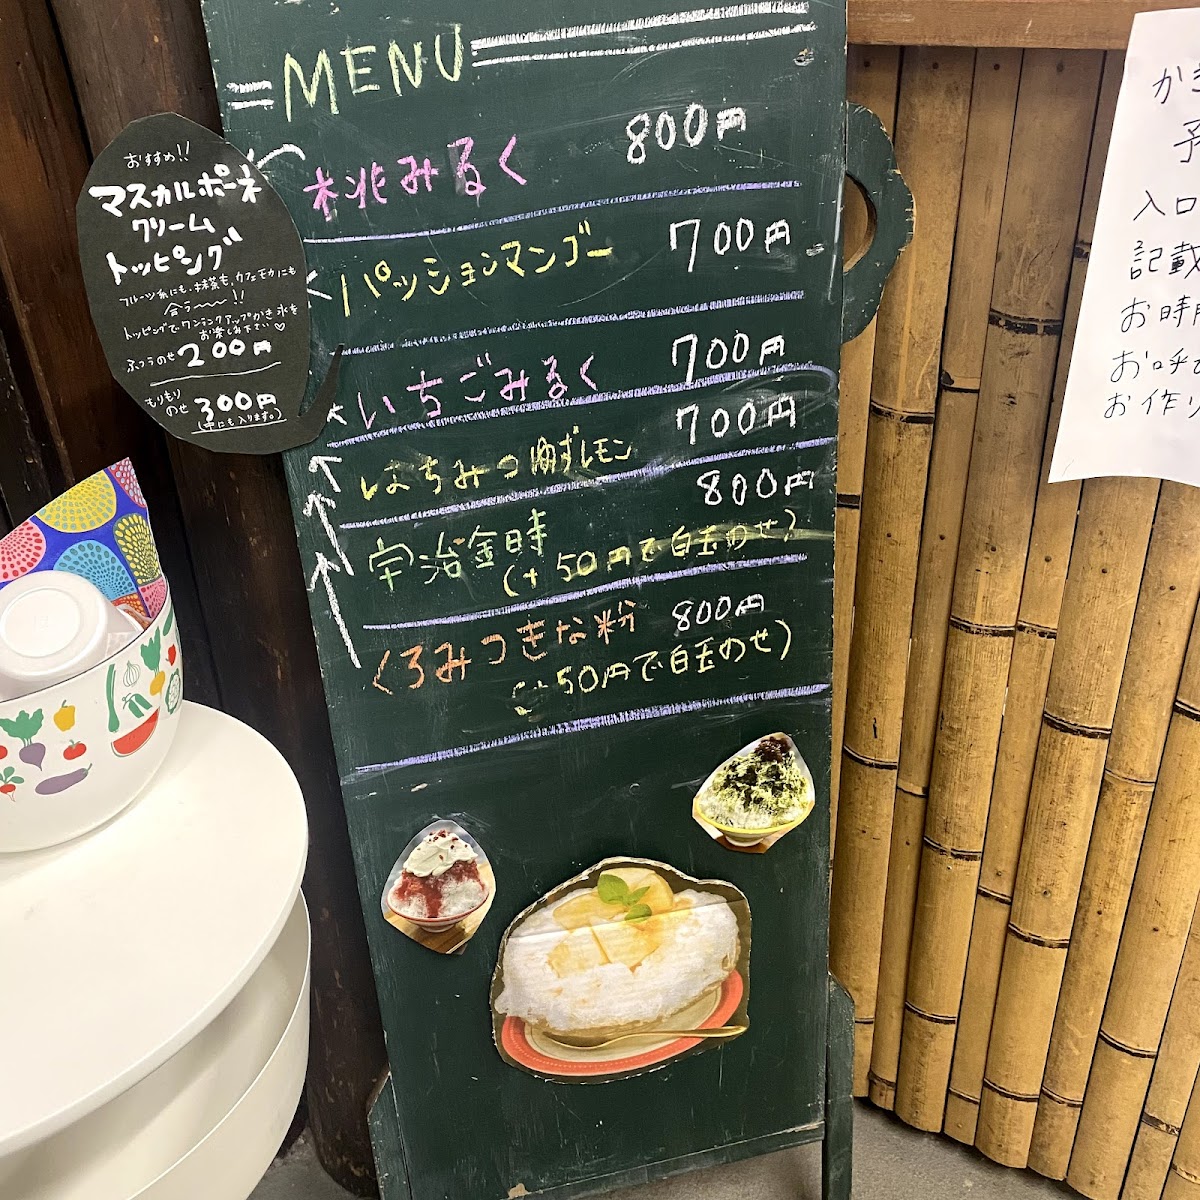 MENU
桃みるく 800円
パッションマンゴー 700円
いちごみるく 700円
はちみつ柚子レモン 700円
宇治金時 800円
(+50円で白玉のせ)
くろみつきな粉 800円
(+50円で白玉のせ)
おすすめ!!
マスカルポーネ
クリーム
トッピング
フルーツ系にも、抹茶も、カフェモカにも
合う〜〜!!
トッピングでワンランクアップかき氷を
お楽しみ下さい♡
ふつうのせ 200円
もりもり
のせ 300円
(中にも入ります。)
か
予
入口
記載
お時
お呼び
お作り